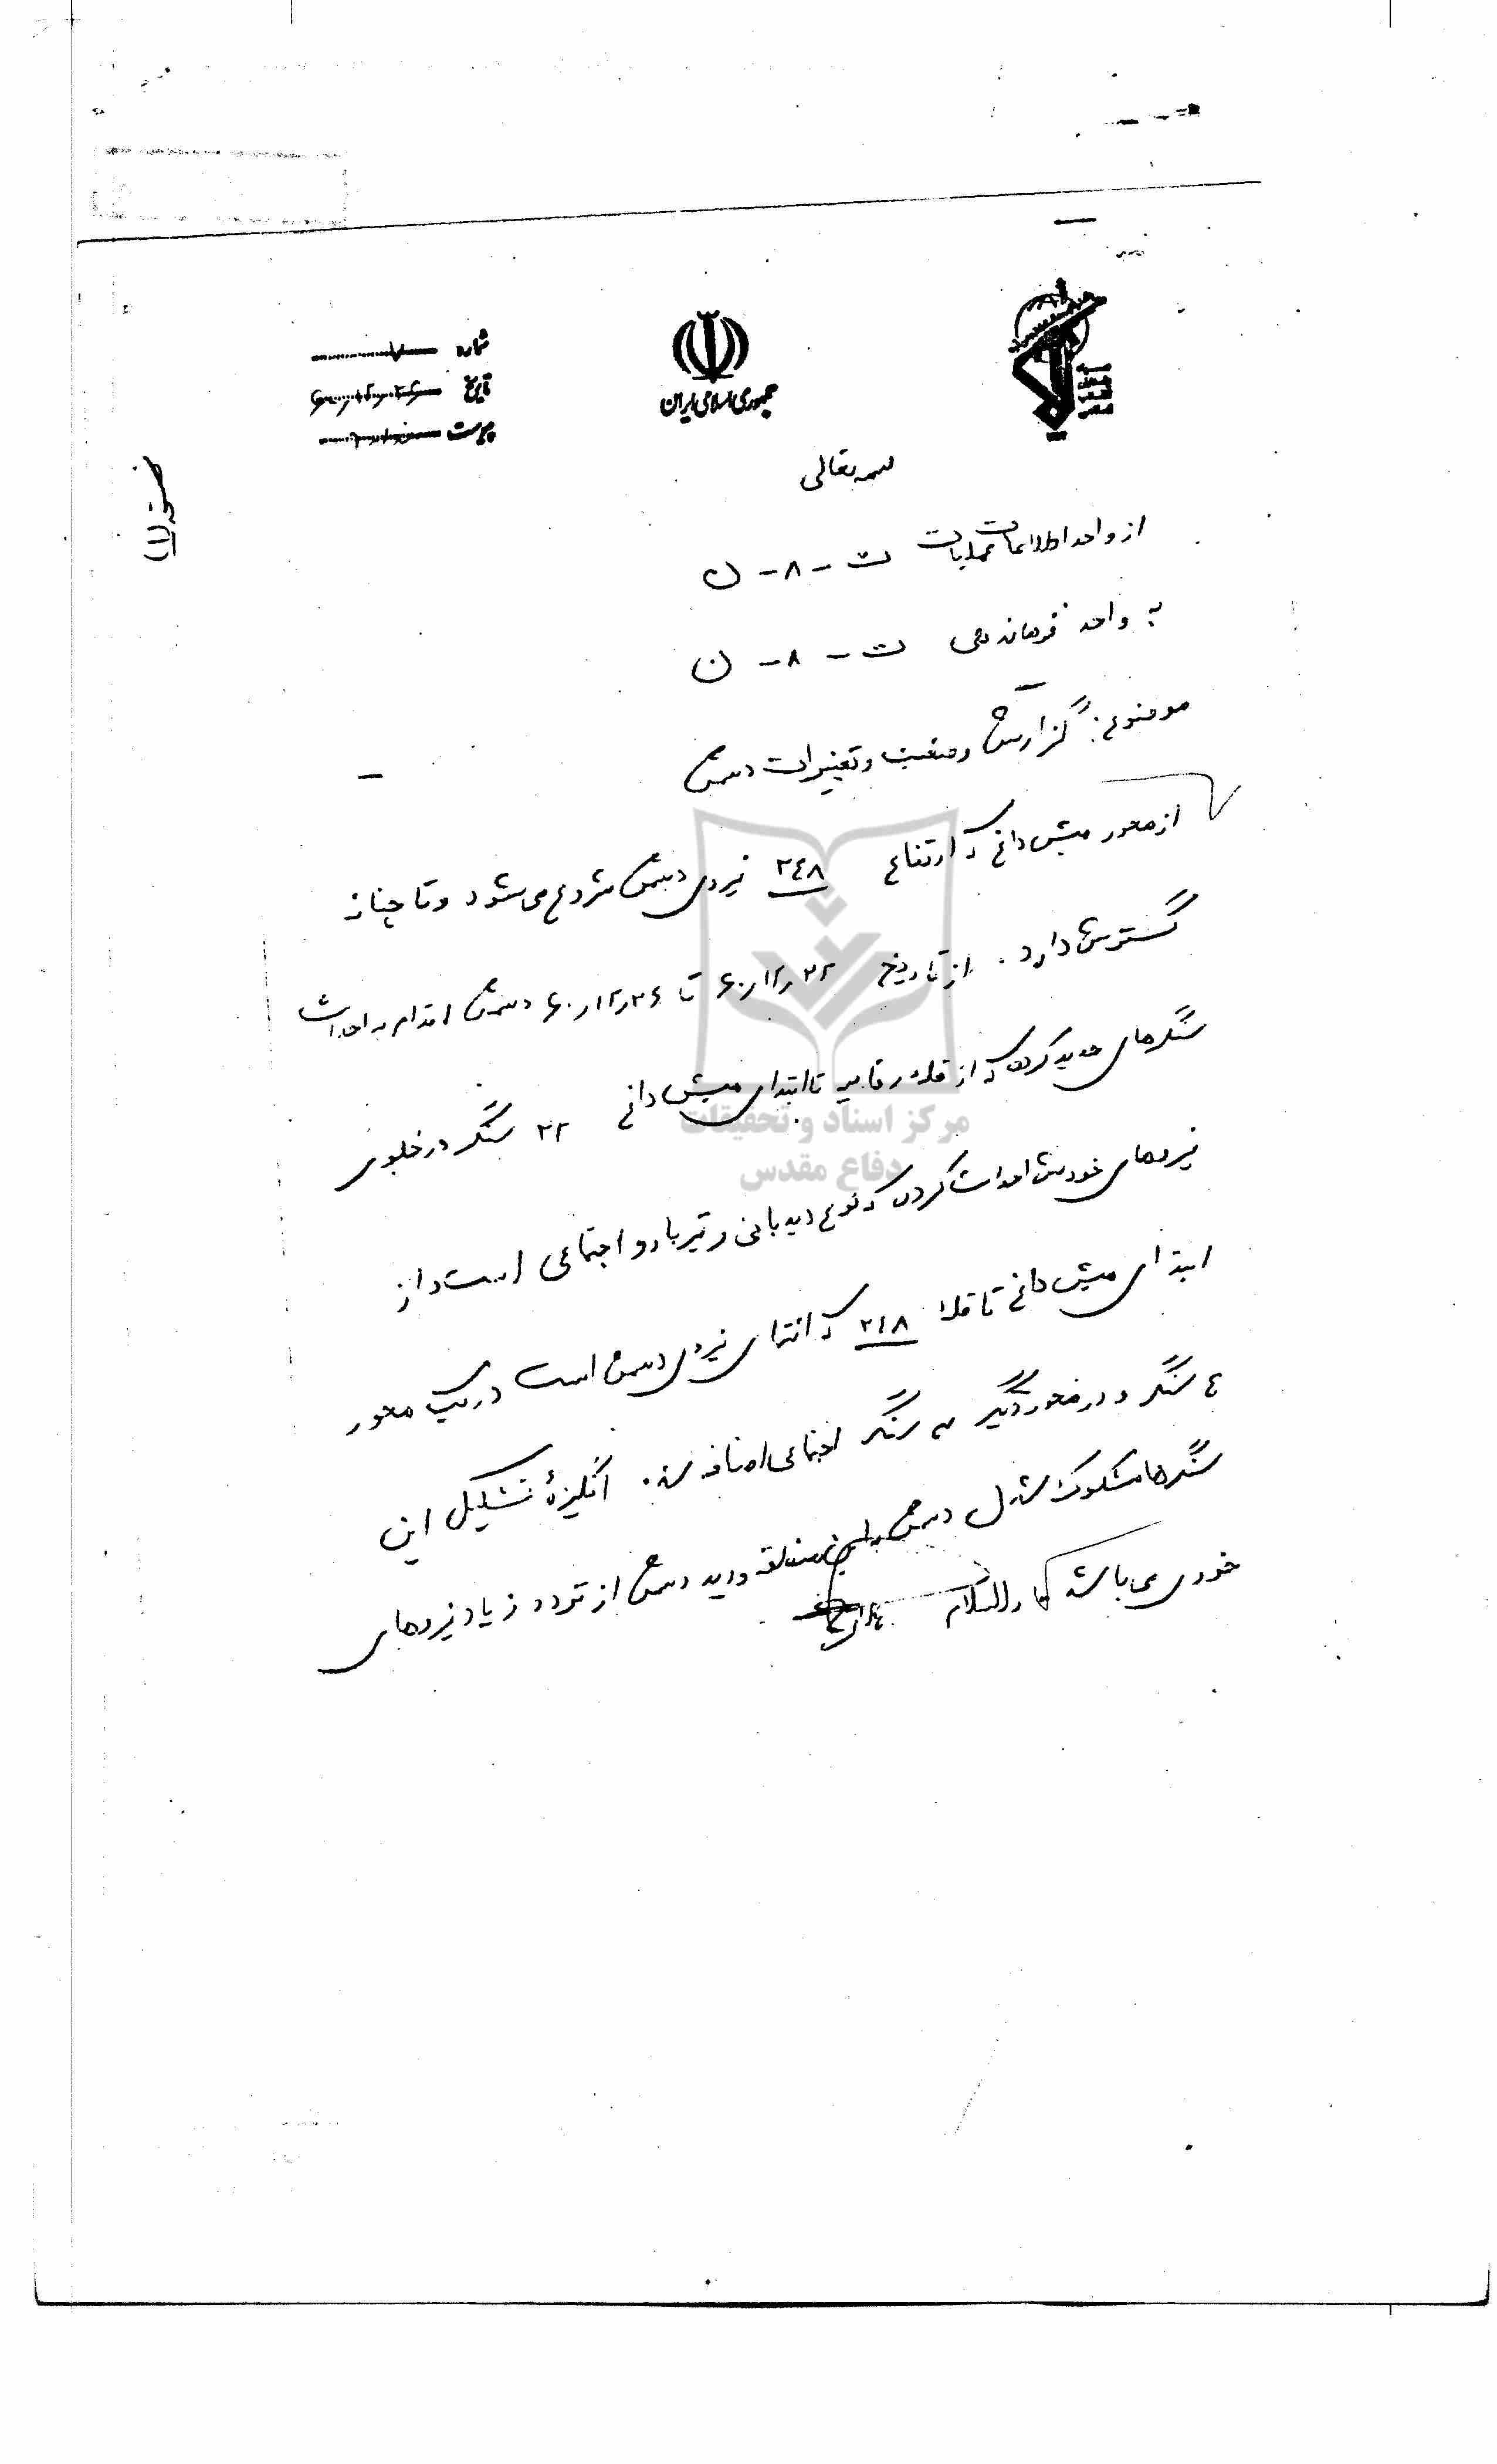 شماره ۷
تاریخ ۶۰/۱۲/۲۶
پیوست ندارد
جمهوری اسلامی ایران
بسمه تعالی
(۱)
از واحد اطلاعات عملیات ت - ۸ - ن
به واحد فرماندهی ت - ۸ - ن
موضوع: گزارش وضعیت و تغییرات دشمن
از محور میش داغ که ارتفاع ۲۴۸ نیروی دشمن شروع می‌شود و تا چنانه
گسترش دارد. از تاریخ ۶۰/۱۲/۲۲ تا ۶۰/۱۲/۲۶ دشمن اقدام به احداث
سنگرهای جدید کرده که از قله رقابیه تا ابتدای میش داغ ۲۲ سنگر در جلوی
نیروهای خودش احداث کرده که نوع دیدبانی و تیربار و اجتماعی است و از
ابتدای میش داغ تا قله ۲۱۸ که انتهای نیروی دشمن است در یک محور
۴ سنگر و در محور دیگر سه سنگر اجتماعی اضافه شده. انگیزهٔ تشکیل این
سنگرها مشکوک شدن دشمن به این منطقه و دید دشمن از تردد زیاد نیروهای
خودی می‌باشد والسلام
مرکز اسناد و تحقیقات
دفاع مقدس